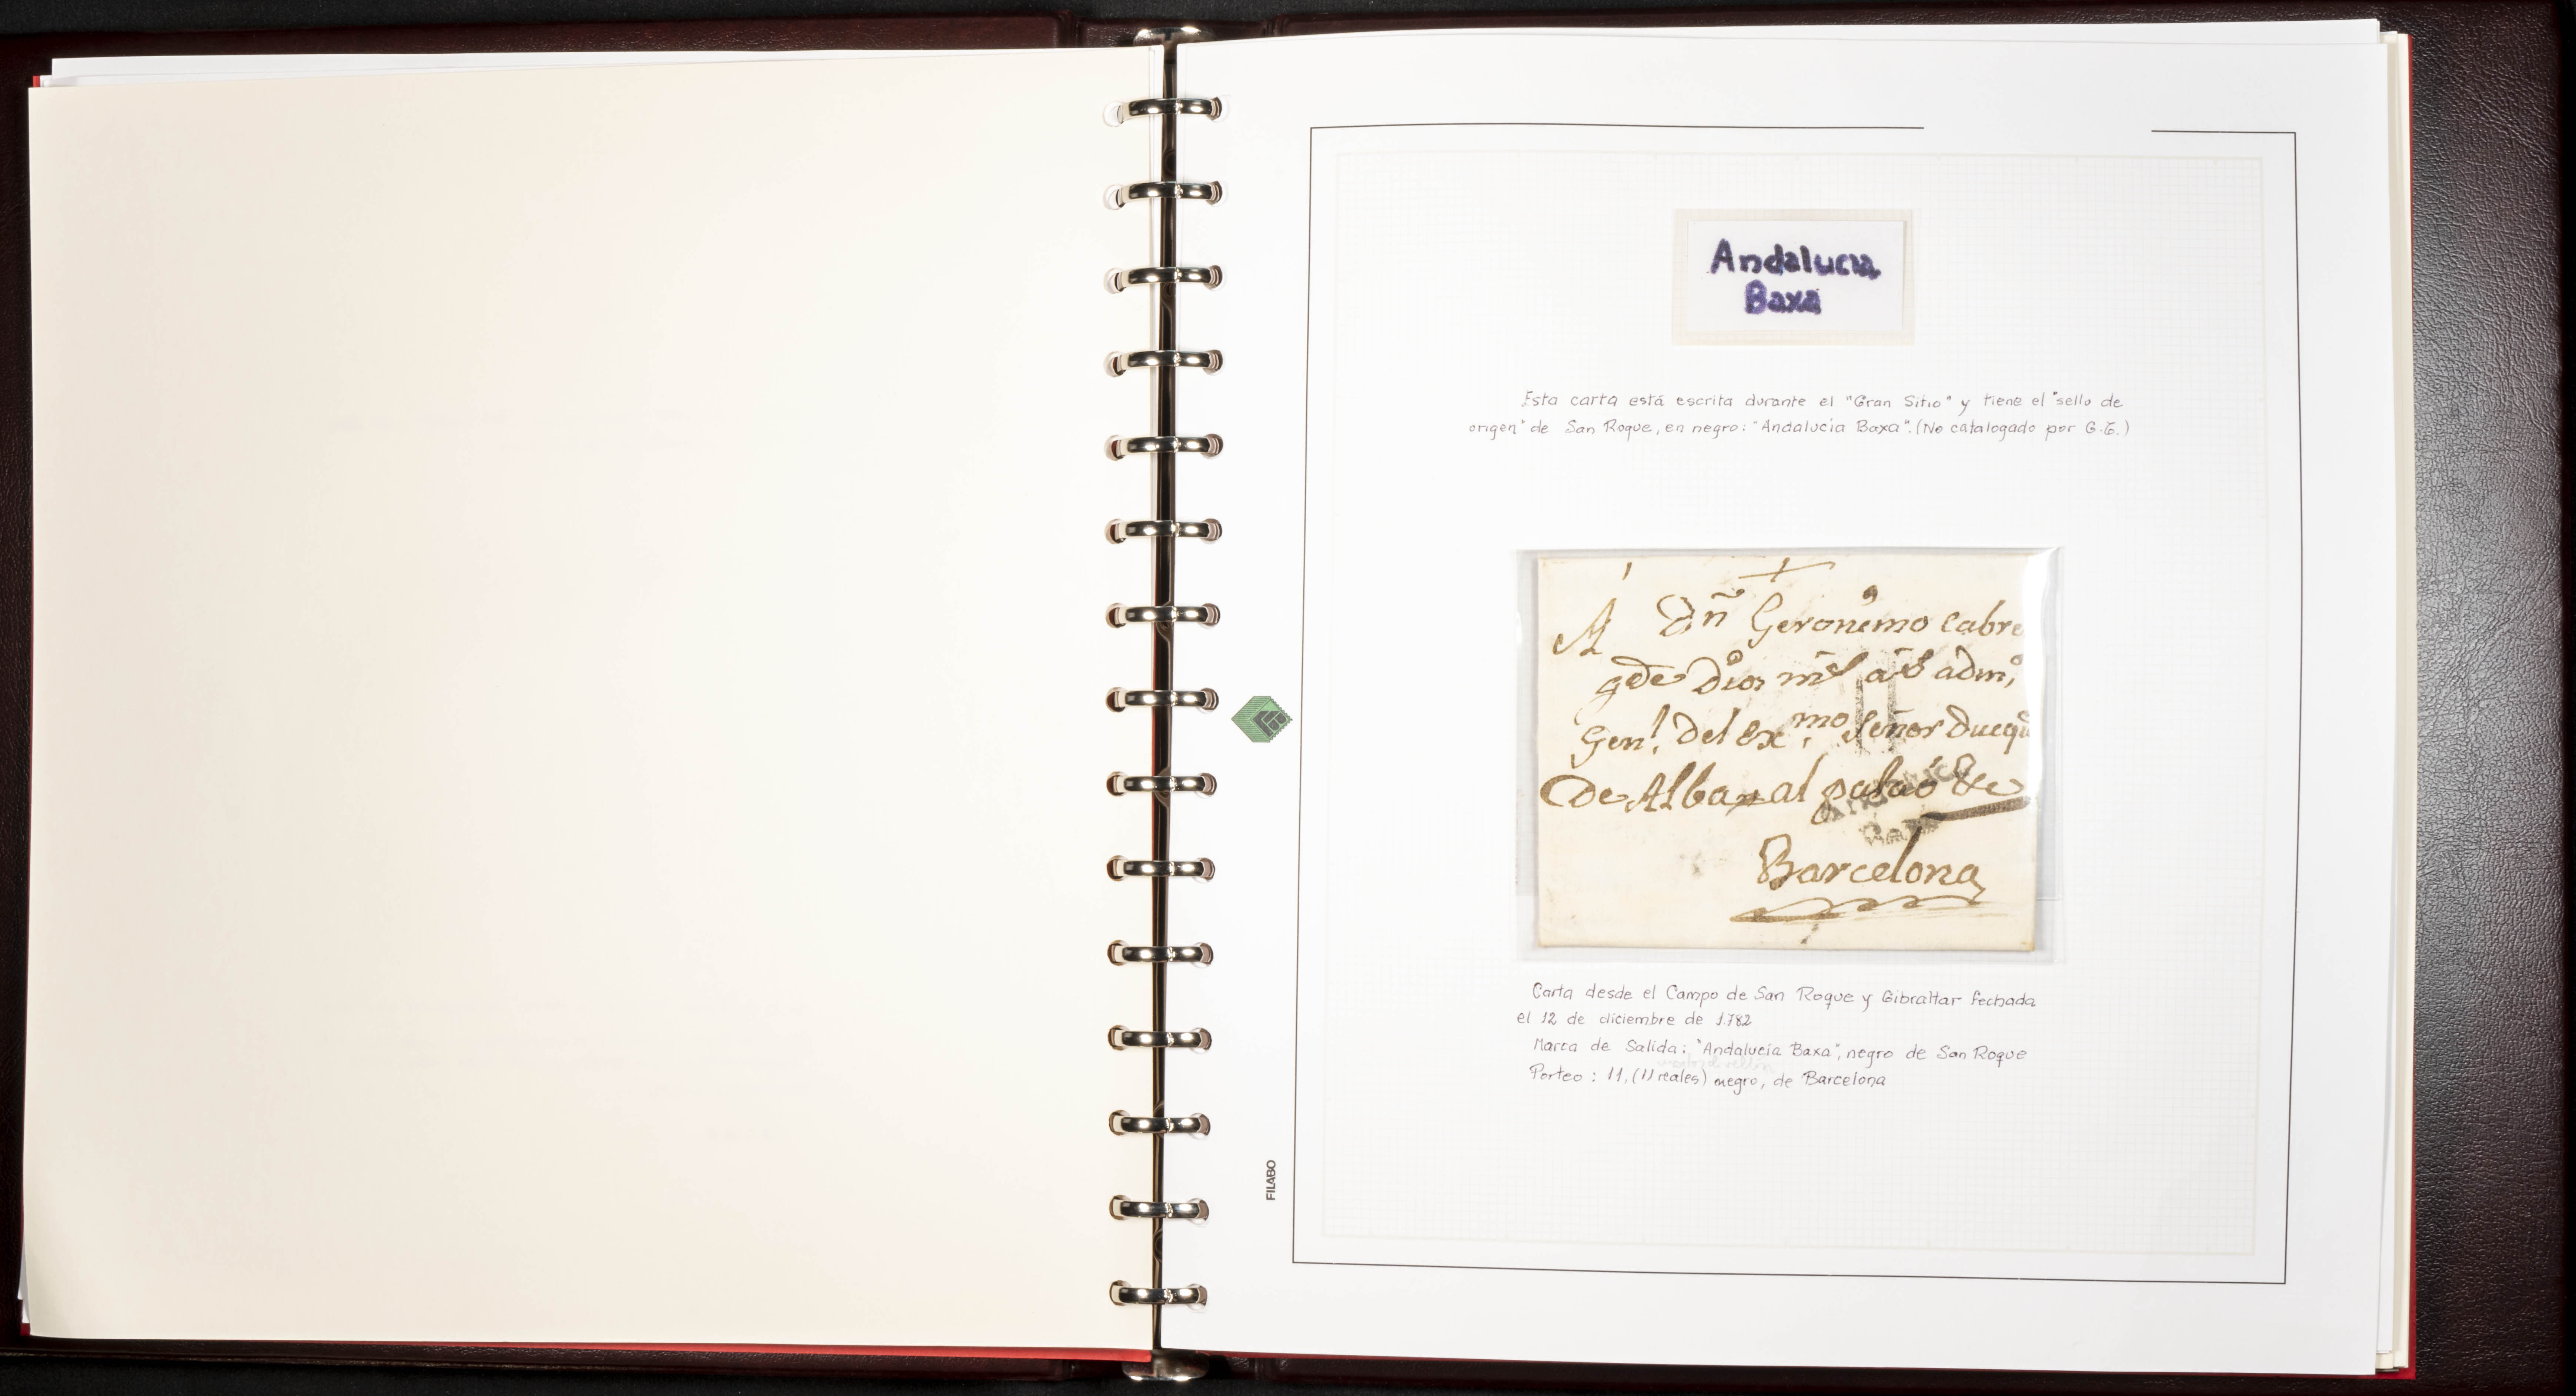 Andalucia
Baxa
Esta carta está escrita durante el "Gran Sitio" y tiene el "sello de
origen" de San Roque, en negro: "Andalucía Baxa". (No catalogado por G.T.)
A Dn Geronimo Cabre
gde Dios ms as admo,
Genl. del Exmo. Señor Duequ
De Alba, al palao &c
Andalucia
Baxa
Barcelona
Carta desde el Campo de San Roque y Gibraltar fechada
el 12 de diciembre de 1.782
Marca de Salida: "Andalucía Baxa", negro de San Roque
Porteo: 11, (11 reales) negro, de Barcelona
FILABO